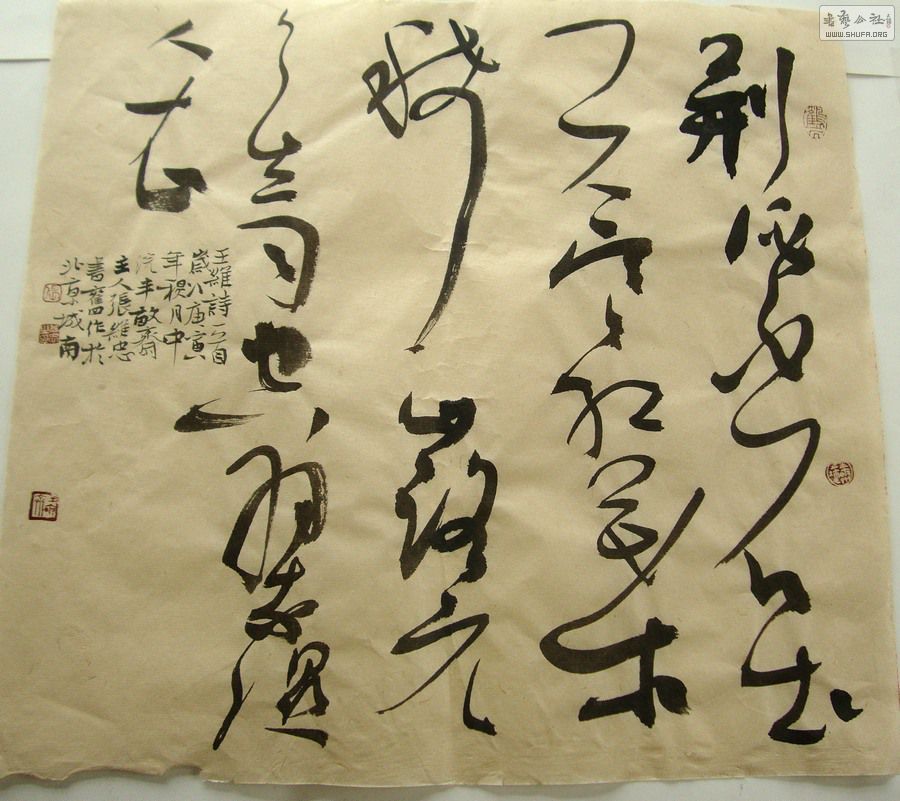 書藝公社
WWW.SHUFA.ORG
荆溪白石出
天寒红葉
稀山路元
无雨空翠湿
人衣
王維詩一首
歲次庚寅
年月中
齋
主人張維忠
書舊作於
北京城南